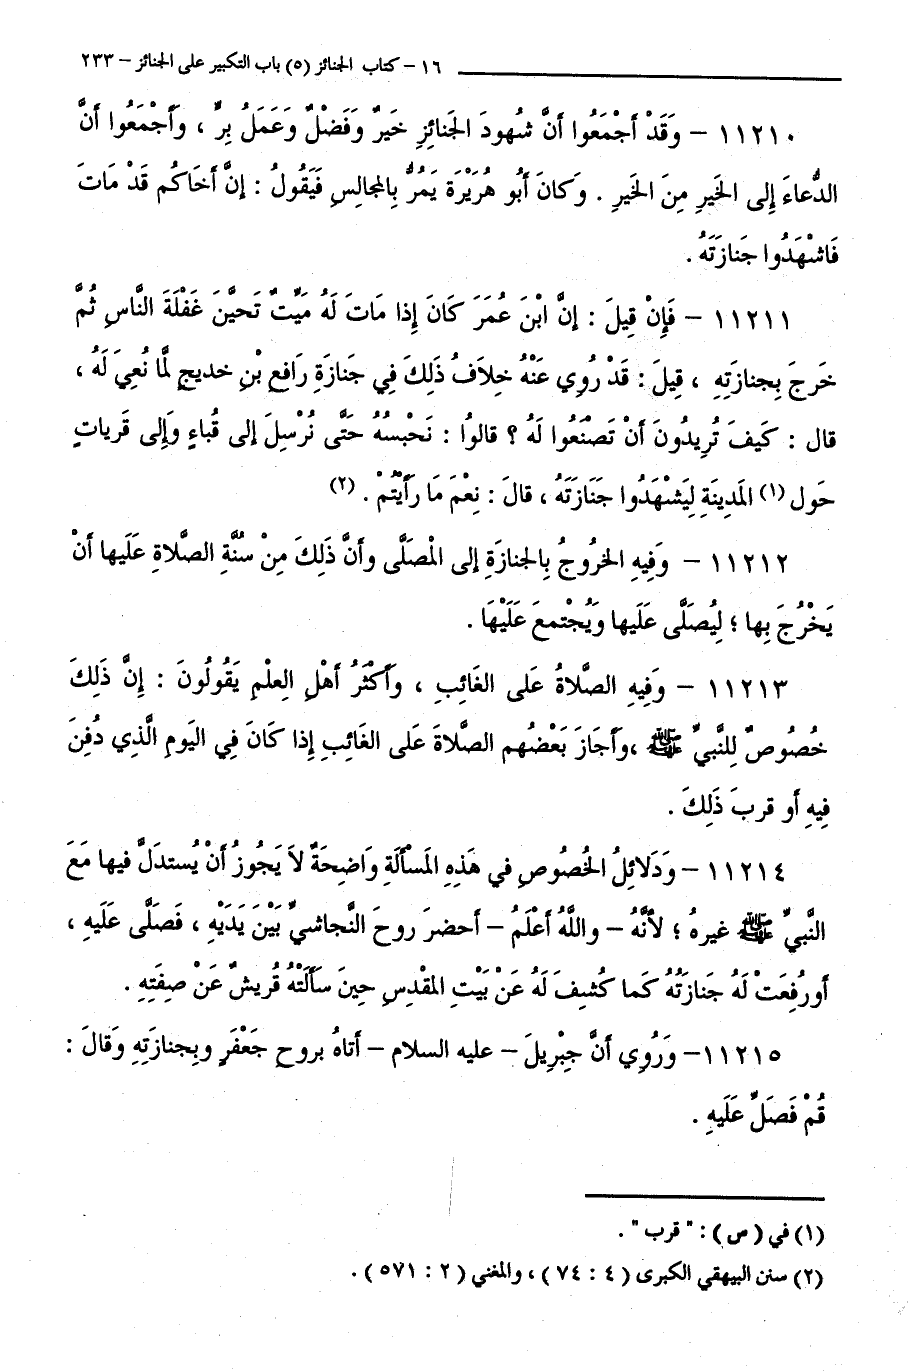 ١٦ – كتاب الجنائز (٥) باب التكبير على الجنائز – ٢٣٣
١١٢١٠ – وَقَدْ أَجْمَعُوا أنَّ شهُودَ الجَنائِزِ خَيرٌ وَفَضْلٌ وَعَمَلُ بِرٍّ ، وأجْمَعُوا أنَّ
الدُّعاءَ إِلى الخَيرِ مِنَ الخَيرِ . وَكانَ أبُو هُرَيْرَةَ يَمُرُّ بِالمجالِسِ فَيَقُولُ : إنَّ أخَاكُم قَدْ مَاتَ
فَاشْهَدُوا جَنازَتَهُ .
١١٢١١ – فَإِنْ قِيلَ : إنَّ ابْنَ عُمَرَ كَانَ إِذا مَاتَ لَهُ مَيِّتٌ تَحيَّنَ غَفْلَةَ النَّاسِ ثُمَّ
خَرَجَ بِجنازَتِهِ ، قِيلَ : قَدْ رُوِي عَنْهُ خلافُ ذَلِكَ فِي جَنازَةِ رَافعِ بْنِ خديجٍ لَّما نُعِيَ لَهُ ،
قال : كَيفَ تُرِيدُونَ أَنْ تَصْنَعُوا لَهُ ؟ قالوُا : نَحْبسُهُ حَتَّى نُرْسِلَ إلى قُباءٍ وَإِلى قَرياتٍ
حَول (١) المَدِينَةِ لِيَشْهَدُوا جَنَازَتَهُ ، قالَ : نِعْمَ مَا رَأَيْتُمْ . (٢)
١١٢١٢ – وَفِيهِ الخرُوجُ بِالجنازَةِ إلى الْمصَلَّى وأنَّ ذَلِكَ مِنْ سُنَّةِ الصَّلاةِ عَلَيها أنْ
يَخْرُجَ بِها ؛ لِيُصَلَّى عَلَيها وَيُجْتمعَ عَلَيْهَا .
١١٢١٣ – وَفِيهِ الصَّلاةُ عَلى الغَائِبِ ، وأَكْثَرُ أهْلِ العِلْمِ يَقُولُونَ : إنَّ ذَلِكَ
خُصُوصٌ لِلنَّبيِّ ﷺ ،وأَجَازَ بَعْضُهم الصَّلاةَ عَلى الغَائبِ إذا كَانَ فِي اليَومِ الَّذِي دُفِنَ
فِيهِ أو قربَ ذَلِكَ .
١١٢١٤ – وَدَلائلُ الخُصُوصِ في هَذِهِ المَسْأَلَةِ وَاضِحَةٌ لاَ يَجُوزُ أنْ يُستدَلَّ فيها مَعَ
النَّبيِّ ﷺ غيرهُ ؛ لأنَّهُ – واللَّهُ أعْلَمُ – أحضرَ روحَ النَّجاشيِّ بَيْنَ يَدَيْهِ ، فَصَلَّى عَلَيهِ ،
أورُفِعَتْ لَهُ جَنازَتُهُ كَما كُشِفَ لَهُ عَنْ بَيْتِ المقْدسِ حِينَ سأَلَتْهُ قُريشٌ عَنْ صِفَتِهِ .
١١٢١٥ – وَرُوِي أنَّ جِبْرِيلَ – عليه السلام – أتاهُ بروحِ جَعْفَرٍ وبِجنازَتِهِ وقَالَ :
قُمْ فَصَلِّ عَلَيهِ .
(١) في ( ص ) : " قرب " .
(٢) سنن البيهقي الكبرى ( ٤ : ٧٤ ) ، والمغني ( ٢ : ٥٧١ ) .